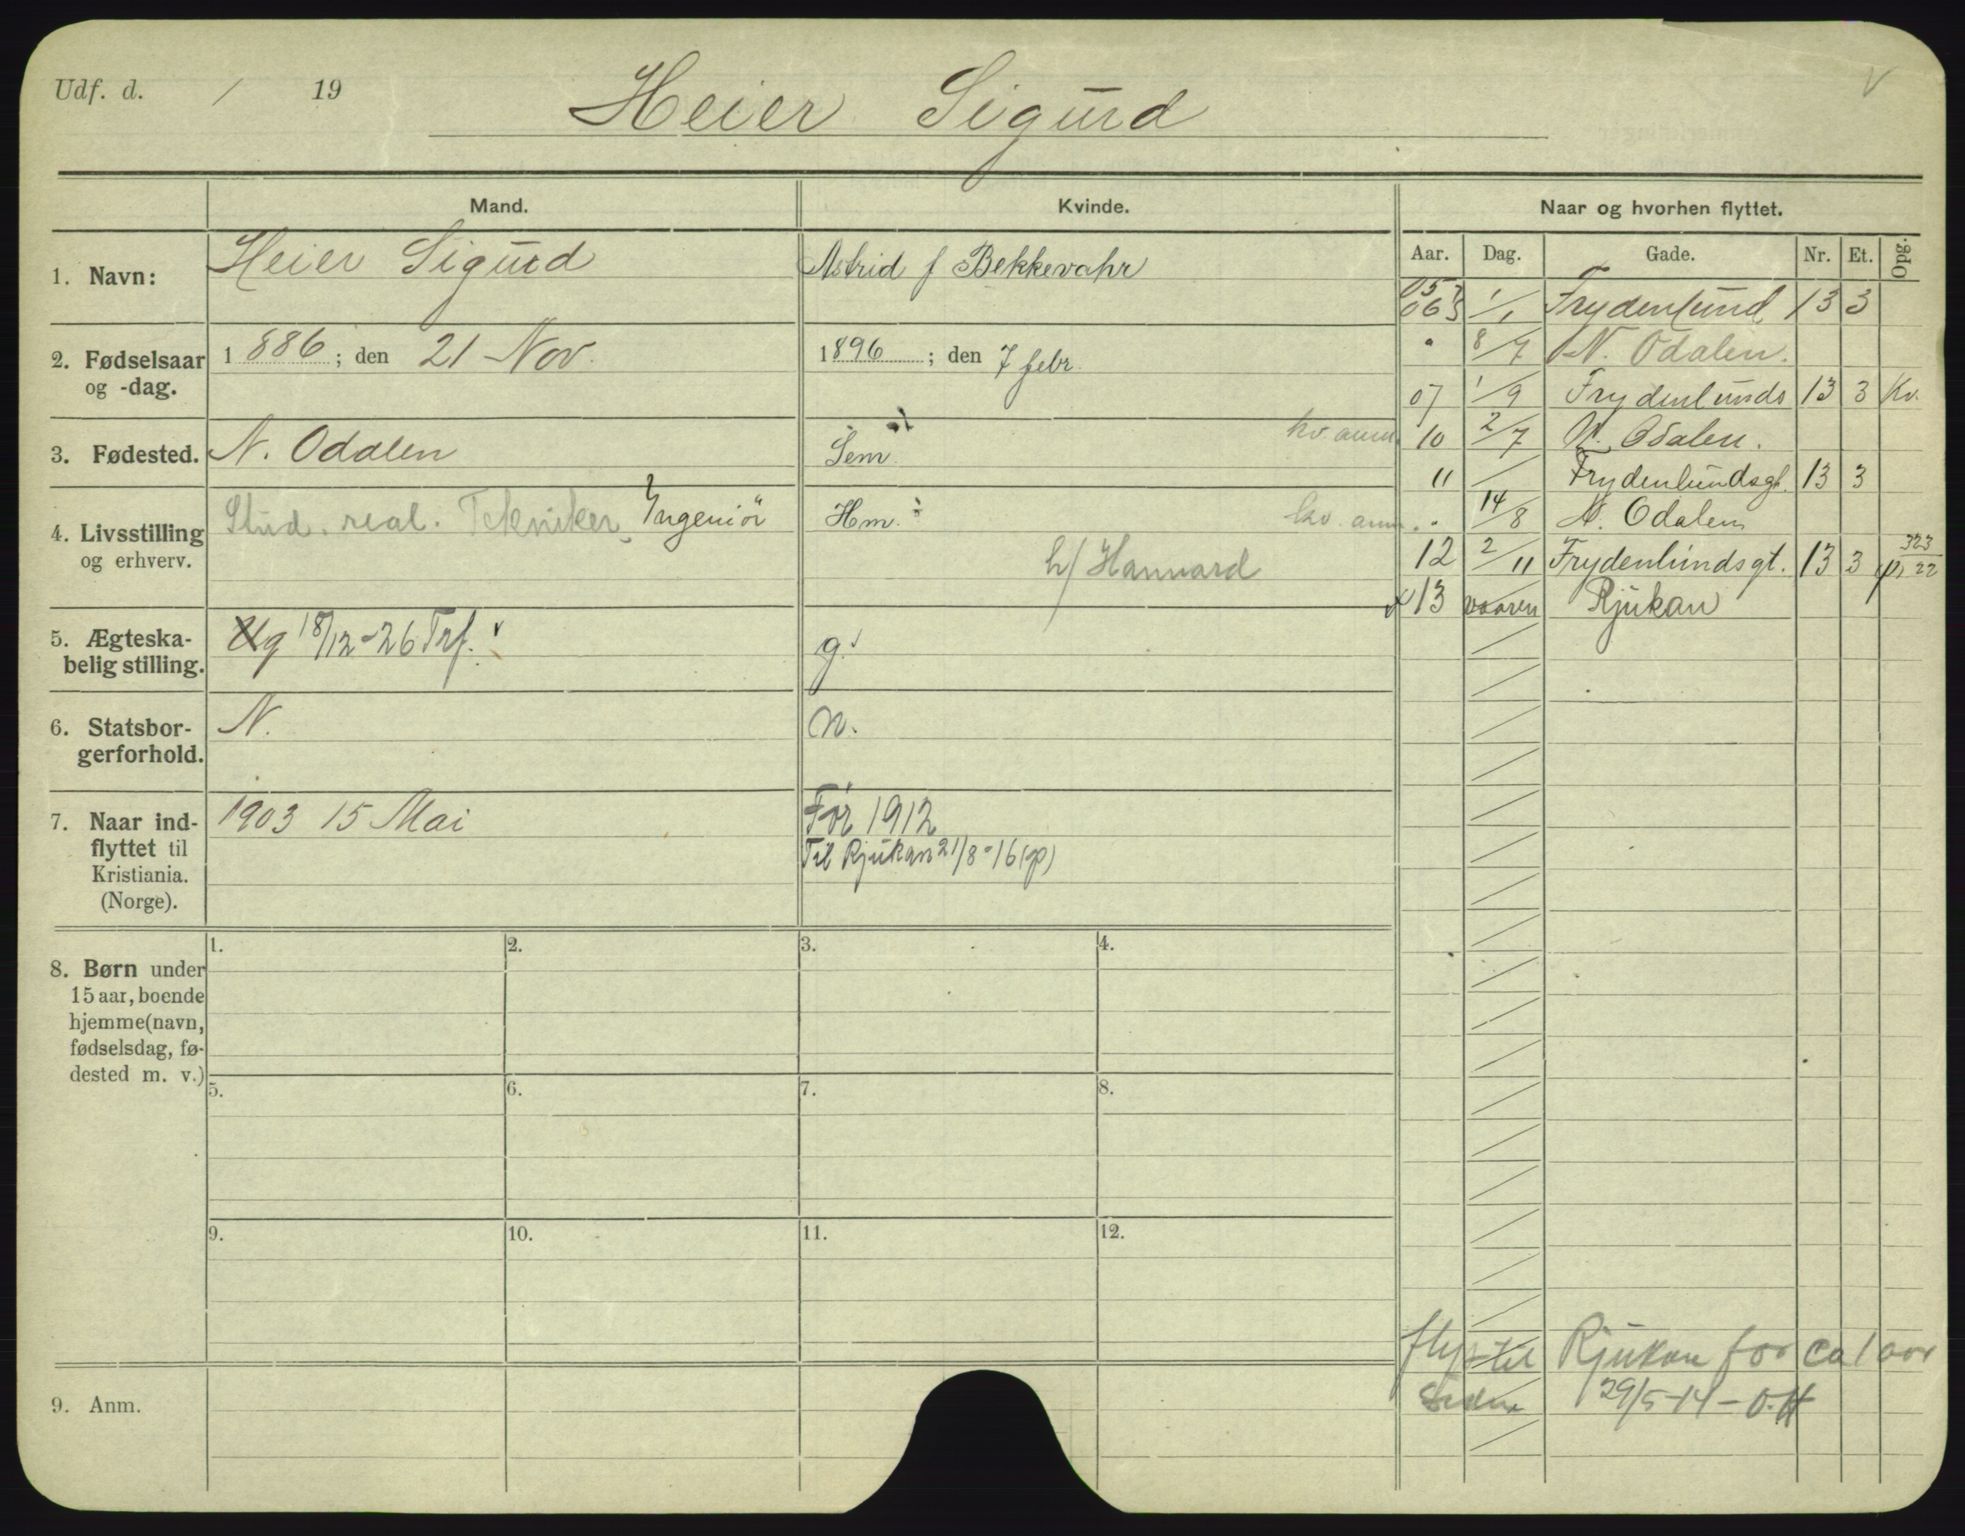 Udf. d. / 19
Heier Sigurd
V
Mand. Kvinde. Naar og hvorhen flyttet.
Aar. Dag. Gade. Nr. Et. Opg.
1. Navn: Heier Sigurd
Astrid f Bekkevahr
2. Fødselsaar og -dag. 1886; den 21 Nov.
1896; den 7 febr.
3. Fødested. N. Odalen
Sem
4. Livsstilling og erhverv. Stud. real. Tekniker, Ingeniør
Hm.
h/ Hannard
5. Ægteska-
belig stilling. Ug 18/12-26 Trf. v
g. v
6. Statsbor-
gerforhold. N.
N.
7. Naar ind-
flyttet til
Kristiania.
(Norge).
1903 15 Mai
Før 1912
Til Rjukan 21/8-16 (gp)
05 }
06 } 1/1 Frydenlund 13 3
" 8/7 N. Odalen.
07 1/9 Frydenlunds 13 3 Kv.
kv. anm. 10 2/7 N. Odalen.
11 / Frydenlundsgt. 13 3
kv. anm. " 14/8 N. Odalen
12 2/11 Frydenlundsgt. 13 3 323/22
x 13 vaaren Rjukan
8. Børn under
15 aar, boende
hjemme (navn,
fødselsdag, fø-
dested m. v.)
1. 2. 3. 4.
5. 6. 7. 8.
9. 10. 11. 12.
flyt til Rjukan for ca 1 aar
siden 29/5-14 - O.H
9. Anm.